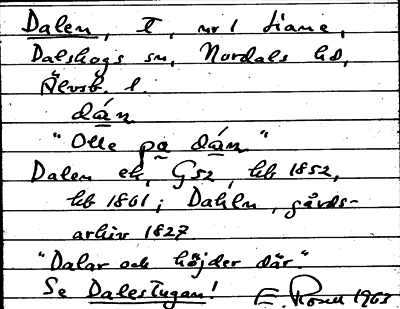 Dalen, T, nr 1 Liane,
Dalskogs sn, Nordals hd,
Älvsb. l.
dán
"Olle pa dán"
Dalen ek, Gsz, hb 1852,
hb 1861; Dahln, gårds-
arkiv 1827
"Dalar och höjder där."
Se Dalestugan! E. Rosell 1963